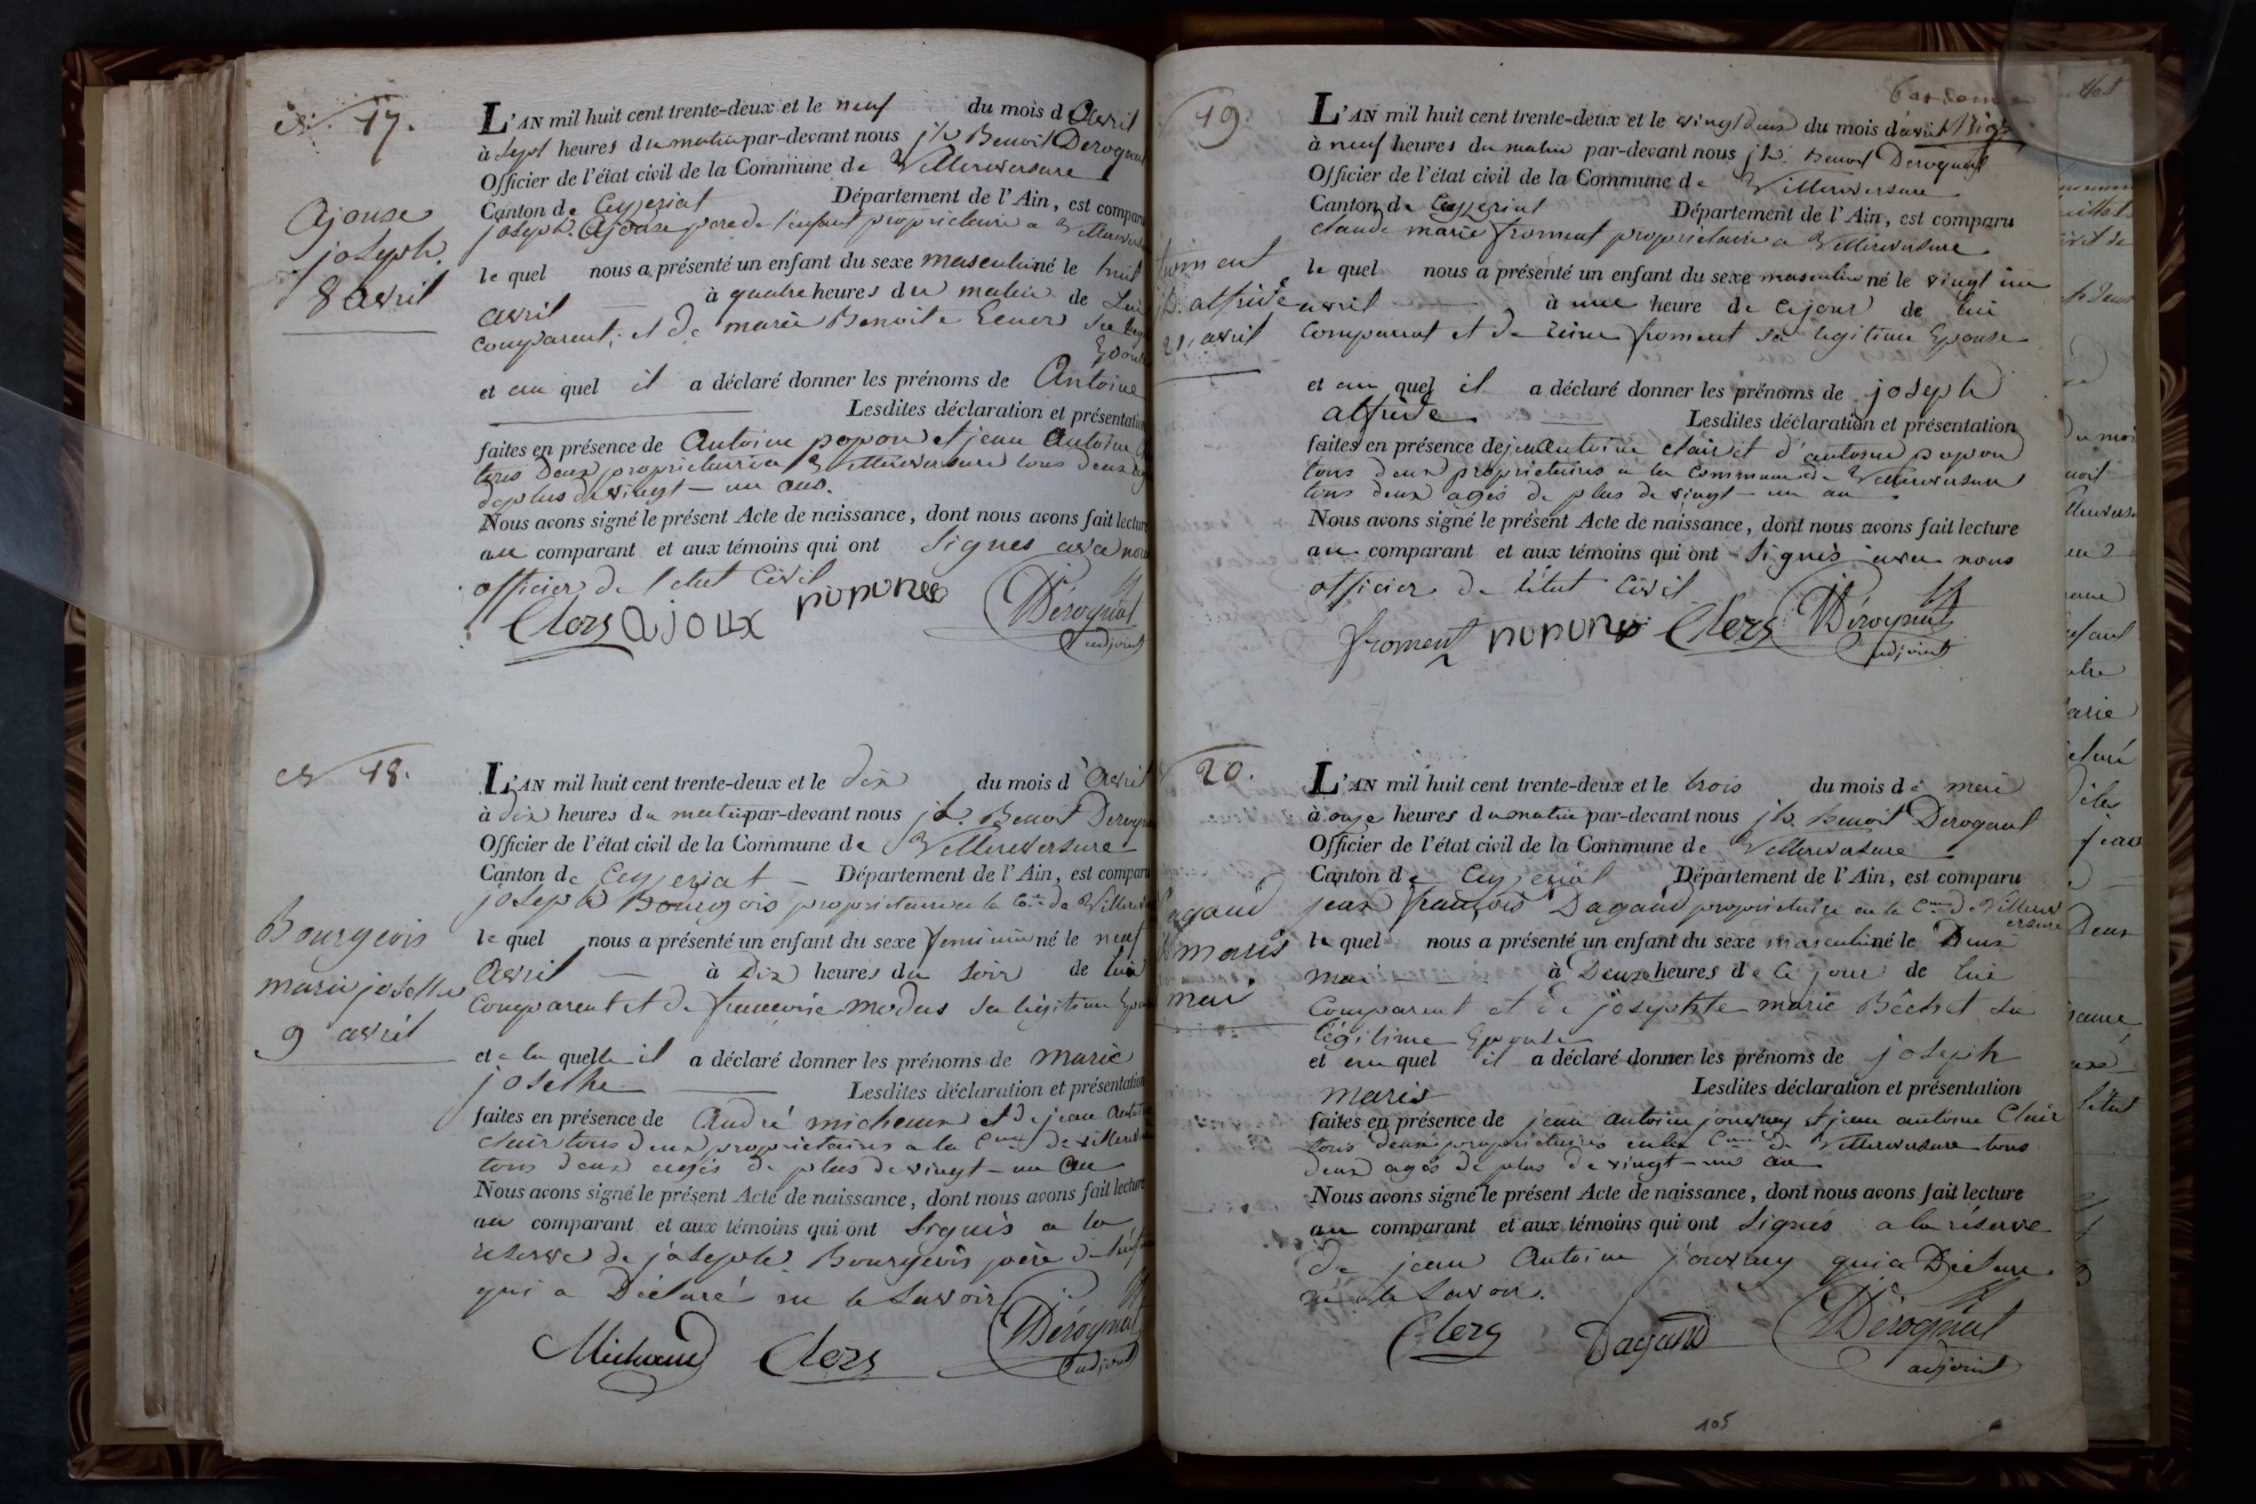 N° 17.
Ajouse
joseph.
8 avril
L'AN mil huit cent trente-deux et le neuf du mois d'avril
à sept heures du matin par-devant nous jh Benoit Derognat
Officier de l'état civil de la Commune de Villereversure
Canton de Ceyzeriat Département de l'Ain, est comparu
joseph Ajouse pere de l'enfant proprietaire a Villereversure
le quel nous a présenté un enfant du sexe masculin né le huit
avril à quatre heures du matin de Lui
comparent, et de marie Benoite sa
Epouse
et au quel il a déclaré donner les prénoms de Antoine
Lesdites déclaration et présentation
faites en présence de Antoine popon et jean Antoine
tous Deux proprietaires a Villereversure tous deux
de plus de vingt-un ans.
Nous avons signé le présent Acte de naissance, dont nous avons fait lecture
au comparant et aux témoins qui ont signés avec nous
officier de l'etat Civil
Clerg ajoux popon Dérognat
adjoint
N° 18.
Bourgeois
marie josette
9 avril
L'AN mil huit cent trente-deux et le dix du mois d'avril
à dix heures du matin par-devant nous jh. Benoit Derognat
Officier de l'état civil de la Commune de Villereversure
Canton de Ceyzeriat Département de l'Ain, est comparu
joseph Bourgois proprietaire en la Cne de Villere
le quel nous a présenté un enfant du sexe feminin né le neuf
Avril à Dix heures du soir de lui
comparent et de francoise modas sa légitime Epouse
et a la quelle il a déclaré donner les prénoms de marie
josethe Lesdites déclaration et présentation
faites en présence de André micheaux et de jean antoine
clair tous deux proprietaires a la Cne de villere
tous deux agés de plus de vingt-un an
Nous avons signé le présent Acte de naissance, dont nous avons fait lecture
au comparant et aux témoins qui ont signés a la
reserve de joseph Bourgeois père de
qui a Déclaré ne le savoir
Michaud Clerg Dérognat
adjoint
19.
froment
jh. alfride
21, avril
L'AN mil huit cent trente-deux et le vingt deux du mois d'avril
à neuf heures du matin par-devant nous jh. Benoit Derognat
Officier de l'état civil de la Commune de Villereversure
Canton de Ceyzeriat Département de l'Ain, est comparu
claude marie froment proprietaire a Villereversure
le quel nous a présenté un enfant du sexe masculin né le vingt un
avril à une heure de ce jour de lui
comparent et de reine froment sa légitime Epouse
et au quel il a déclaré donner les prénoms de joseph
alfride Lesdites déclaration et présentation
faites en présence de jean antoine clair et d'antoine popon
tous deux proprietaires a la commune de Villereversure
tous deux agés de plus de vingt-un an
Nous avons signé le présent Acte de naissance, dont nous avons fait lecture
au comparant et aux témoins qui ont signés avec nous
officier de l'état Civil
froment popon Clerg Dérognat
adjoint
20.
Dagaud
maris
mai
L'AN mil huit cent trente-deux et le trois du mois de mai
à onze heures du matin par-devant nous jh. Benoit Derognat
Officier de l'état civil de la Commune de Villereversure
Canton de Ceyzeriat Département de l'Ain, est comparu
jean françois Dagaud proprietaire en la Cne de Villerev
ersure
le quel nous a présenté un enfant du sexe masculin né le Deux
mai à Deux heures de ce jour de lui
comparent et de josephte marie Bêchet sa
légitime Epouse
et au quel il a déclaré donner les prénoms de joseph
maris Lesdites déclaration et présentation
faites en présence de jean antoine jouvray et jean antoine Clair
tous deux proprietaires en la Cne de Villereversure tous
deux agés de plus de vingt-un an
Nous avons signé le présent Acte de naissance, dont nous avons fait lecture
au comparant et aux témoins qui ont signés a la réserve
de jean Antoine jouvray qui a Déclaré
ne le savoir.
Clerg Dagaud Dérognat
adjoint
105